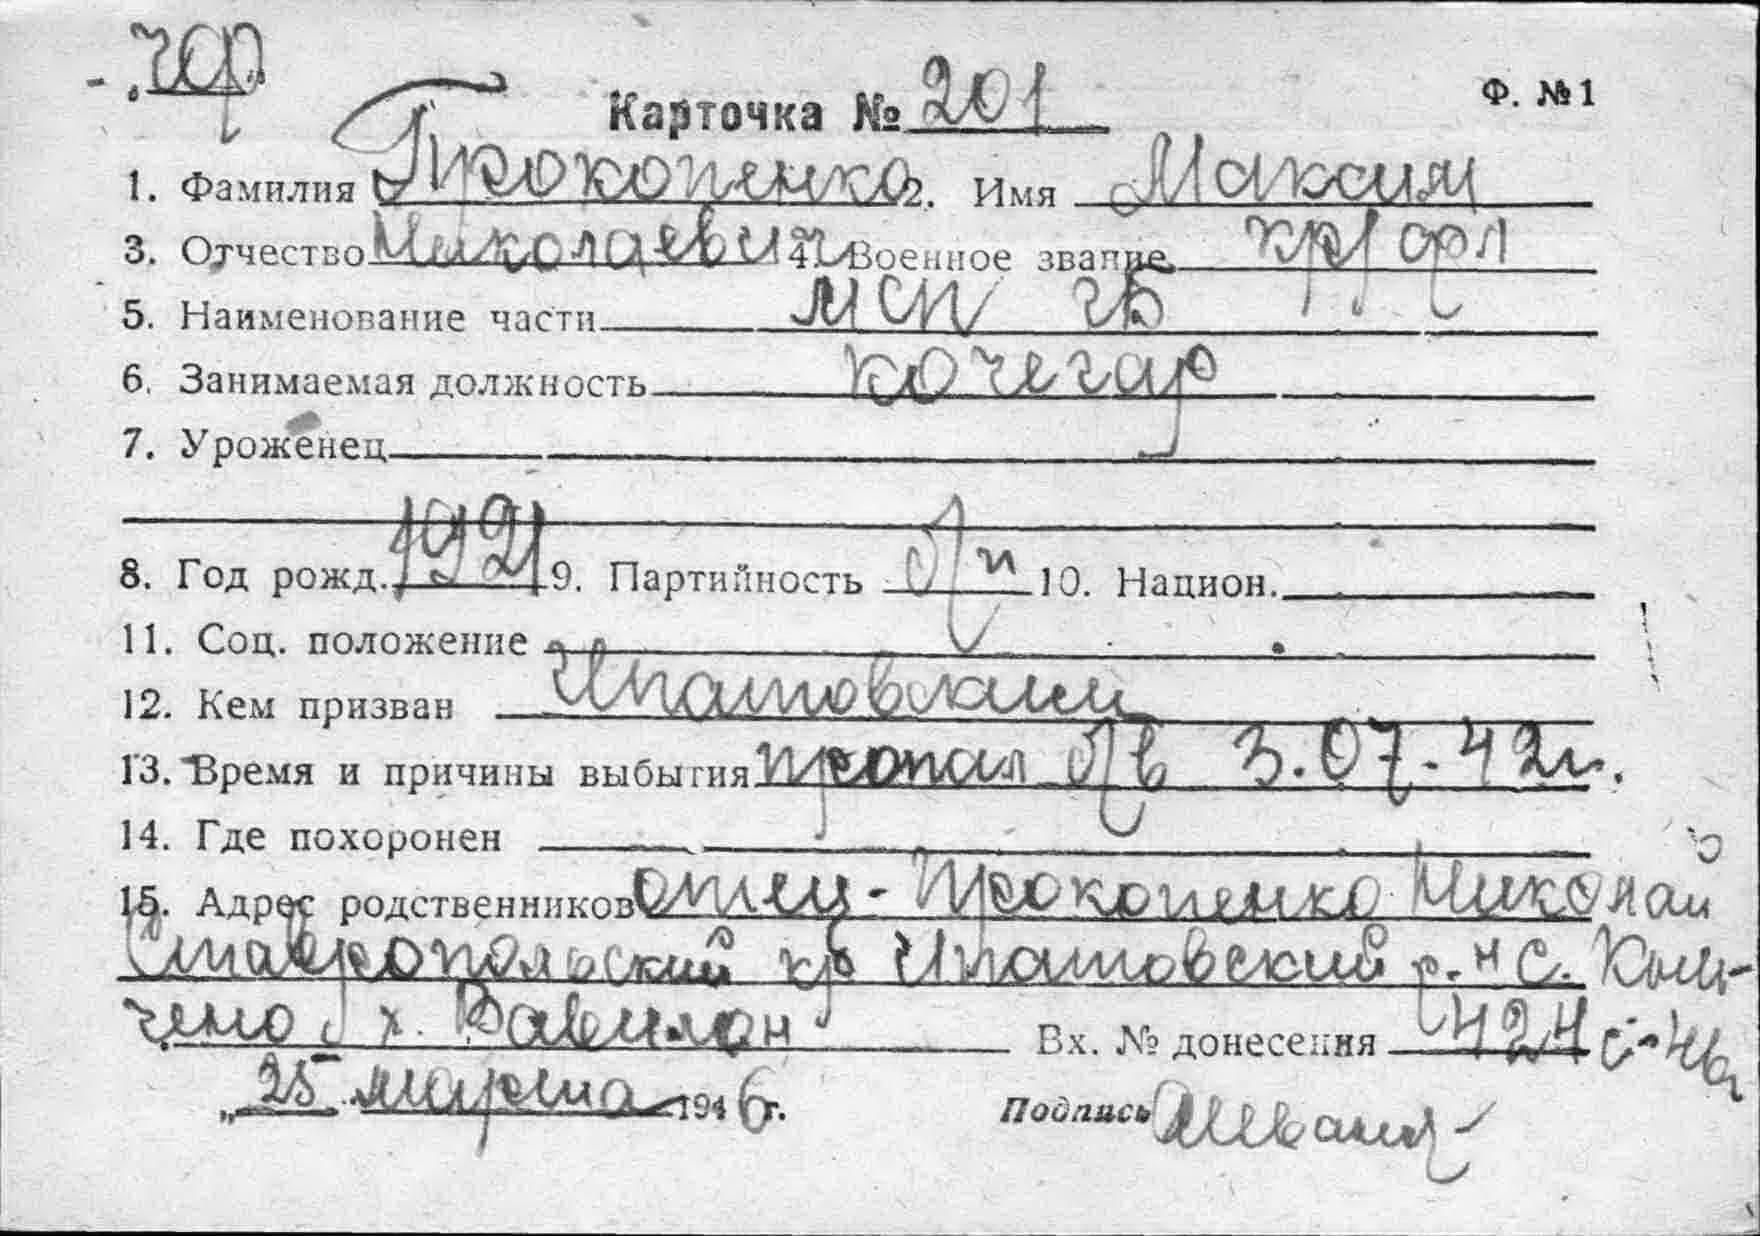 „чф“
Карточка № 201 Ф. №1
1. Фамилия Прокопенко 2. Имя Максим
3. Отчество Николаевич 4. Военное звание кр/фл
5. Наименование части МСП ЧБ
6. Занимаемая должность кочегар
7. Уроженец
8. Год рожд. 1921 9. Партийность б/п 10. Национ.
11. Соц. положение
12. Кем призван Ипатовским
13. Время и причины выбытия пропал б/в 3.07.42 г.
14. Где похоронен
15. Адрес родственников отец - Прокопенко Николай
Ставропольский кр Ипатовский р-н с.
х. Вавилон Вх. № донесения 424 с-46г
„25 марта 1946 г. Подпись